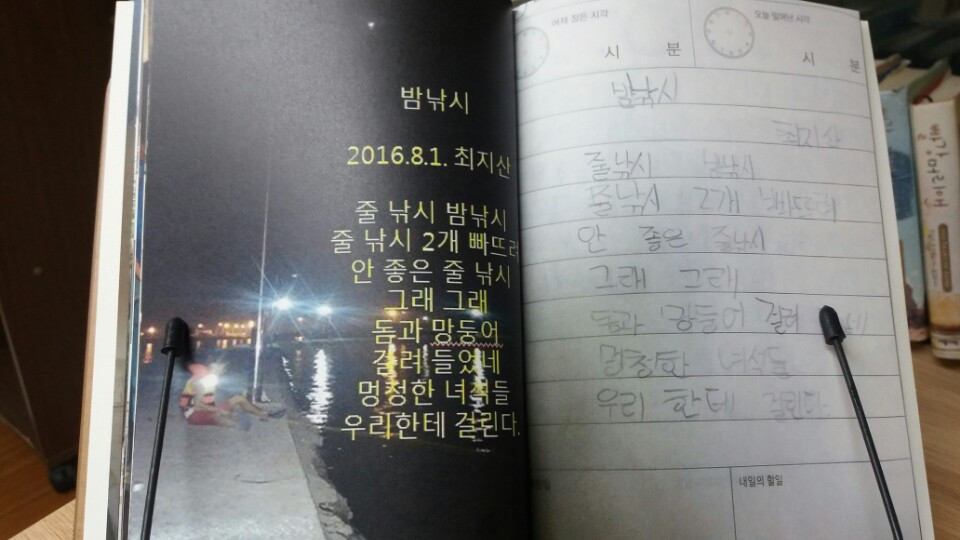 밤낚시
2016.8.1. 최지산
줄 낚시 밤낚시
줄 낚시 2개 빠뜨려
안 좋은 줄 낚시
그래 그래
돔과 망둥어
걸려 들었네
멍청한 녀석들
우리한테 걸린다.
어제 잠든 시각
시 분
오늘 일어난 시각
시 분
밤낚시
최지산
줄낚시 밤낚시
줄낚시 2개 빠뜨려
안 좋은 줄낚시
그래 그래
돔과 망둥어 걸려
멍청한 녀석들
우리 한테 걸린다
내일의 할일
빨강머리 앤